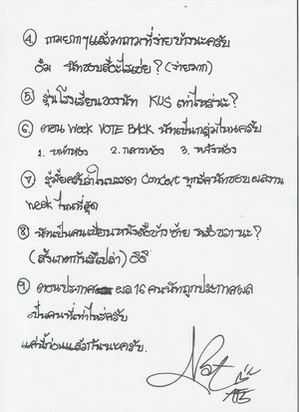 ④ ถามยากๆแล้วมาถามที่ง่ายบ้างนะครับ
อืม นัทชอบสีอะไรเอ่ย ? (ง่ายมาก)
⑤ รุ่นโรงเรียนของนัท KUS เท่าไหร่นะ ?
⑥ ตอน Week VOTE BACK นัทเป็นกลุ่มไหนครับ
1. หน้าห้อง 2. กลางห้อง 3. หลังห้อง
⑦ รู้มั้ยครับว่าในบรรดา Concert ทุกวีคนัทชอบผลงาน
week ไหนที่สุด
⑧ นัทเป็นคนเขียนหนังสือข้างซ้าย หรือ ขวา นะ ?
(สังเกตกันรึเปล่า) อิอิ
⑨ ตอนประกาศ ผล 16 คนนัทถูกประกาศผล
เป็นคนที่เท่าไหร่ครับ
แค่นี้ก่อนแล้วกันนะครับ.